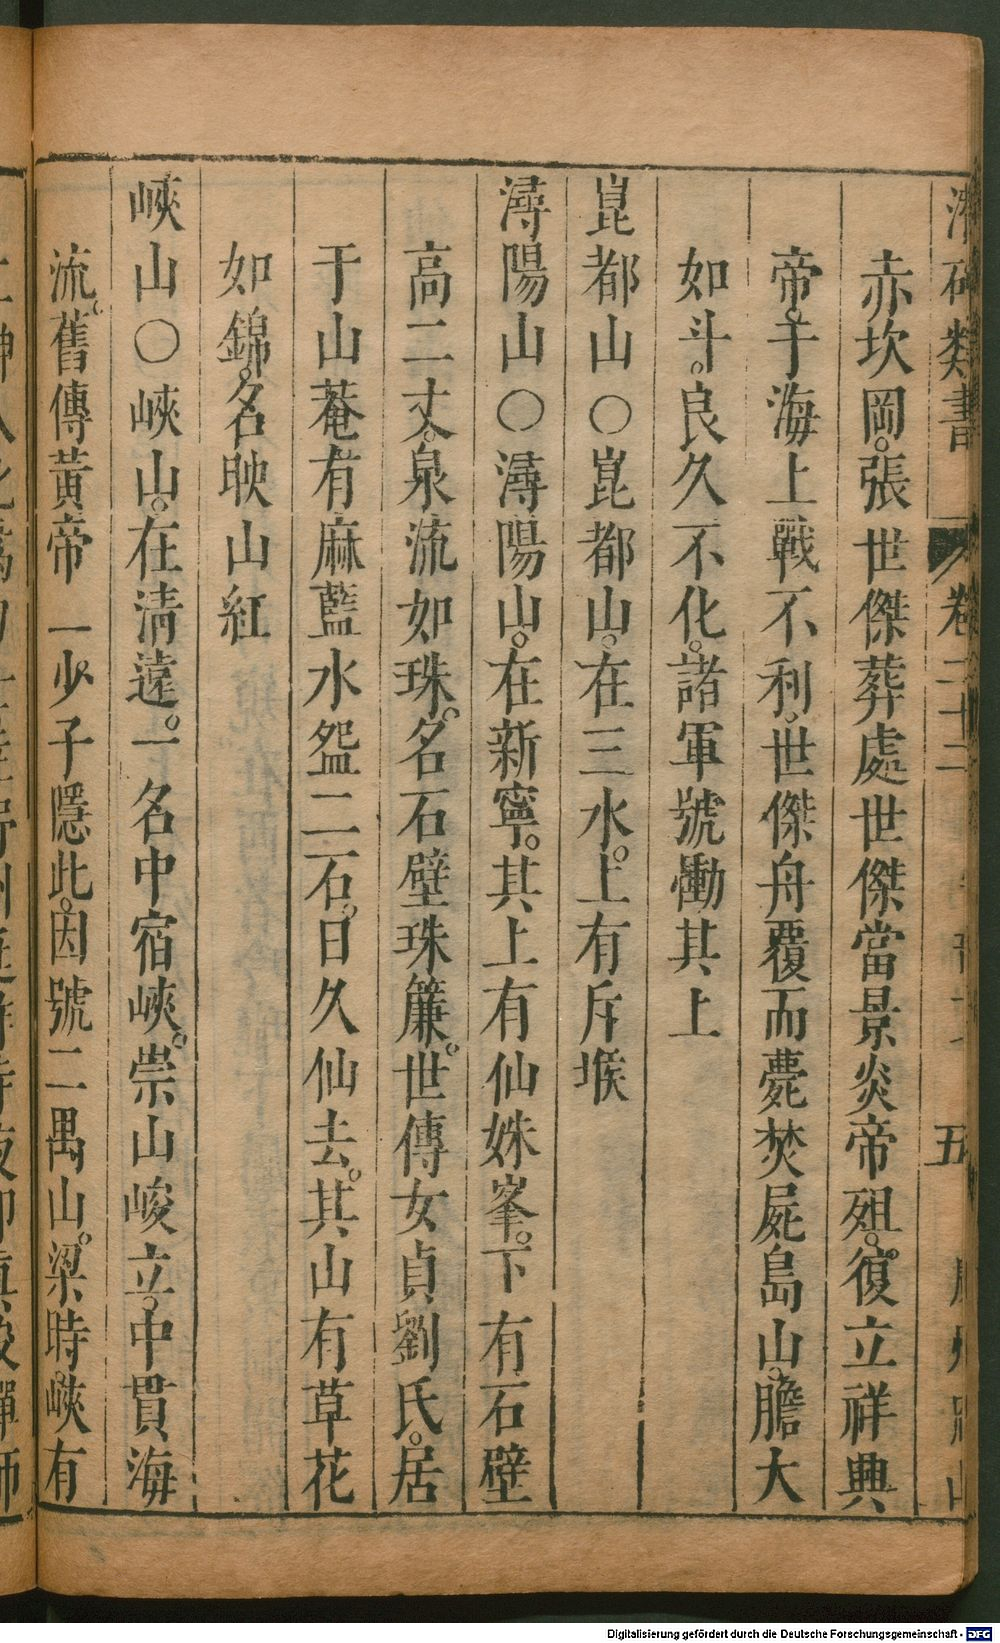 類書 卷二十二 五
赤坎岡。張世傑葬處世傑當景炎帝殂。復立祥興
帝。于海上戰不利。世傑舟覆而薨焚屍島山。膽大
如斗。良久不化。諸軍號慟其上
崑都山○崑都山。在三水。上有斥堠
潯陽山○潯陽山。在新寧。其上有仙姝峯。下有石壁
高二丈。泉流如珠。名石壁珠簾。世傳女貞劉氏。居
于山菴有麻藍水盌二石。日久仙去。其山有草花
如錦。名映山紅
峽山○峽山。在清遠。一名中宿峽。崇山峻立。中貫海
流。舊傳黃帝一少子隱此。因號二禺山。梁時。峽有
Digitalisierung gefördert durch die Deutsche Forschungsgemeinschaft - DFG